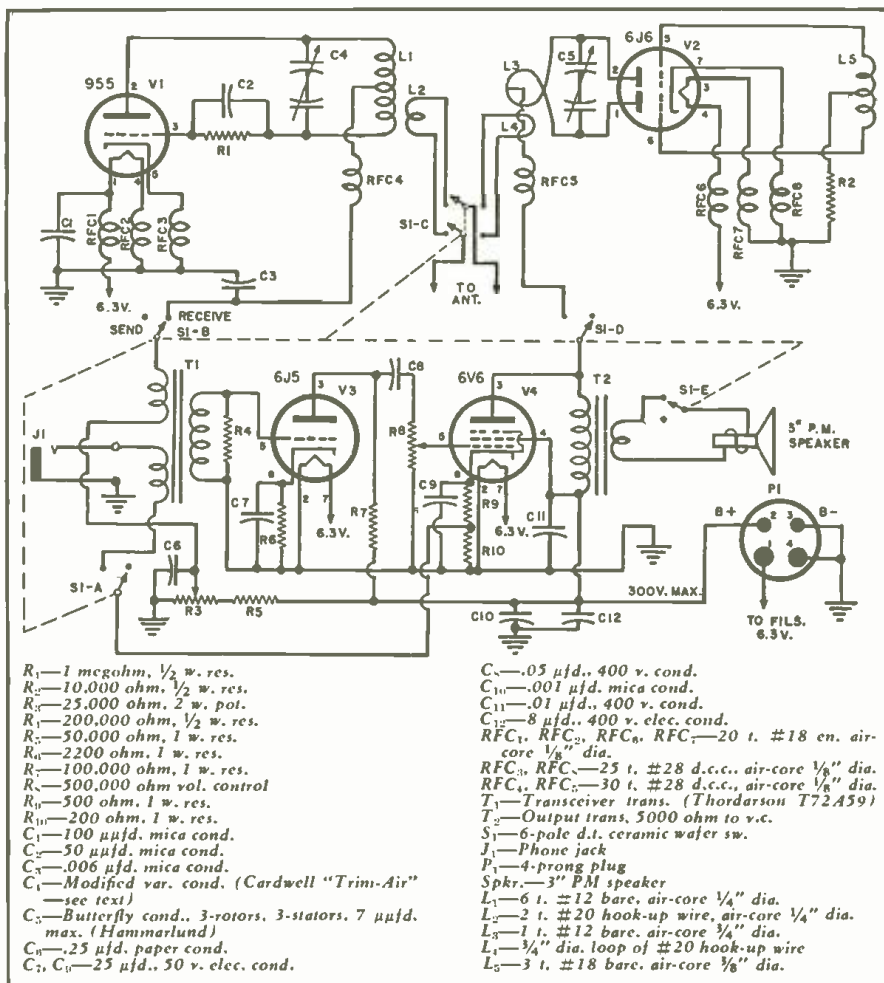 955
V1
2
3
1
4
5
C2
R1
C4
L1
L2
C1
RFC1
RFC2
RFC3
RFC4
C3
6.3V.
L3
L4
C5
6J6
V2
5
7
3
4
2
1
6
L5
R2
RFC5
RFC6
RFC7
RFC8
6.3V.
S1-C
TO
ANT.
SEND
RECEIVE
S1-B
S1-D
J1
T1
R4
6J5
V3
3
5
8
2
7
C7
R6
6.3V.
R7
C8
R8
6V6
V4
3
5
4
8
2
7
C9
R9
R10
6.3V.
C11
T2
S1-E
3" P.M.
SPEAKER
P1
B+
B-
2
3
1
4
C6
S1-A
R3
R5
C10
C12
300V. MAX.
TO FILS.
6.3V.
R₁—1 megohm, ½ w. res.
R₂—10,000 ohm, ½ w. res.
R₃—25,000 ohm, 2 w. pot.
R₄—200,000 ohm, ½ w. res.
R₅—50,000 ohm, 1 w. res.
R₆—2200 ohm, 1 w. res.
R₇—100,000 ohm, 1 w. res.
R₈—500,000 ohm vol. control
R₉—500 ohm, 1 w. res.
R₁₀—200 ohm, 1 w. res.
C₁—100 μμfd. mica cond.
C₂—50 μμfd. mica cond.
C₃—.006 μfd. mica cond.
C₄—Modified var. cond. (Cardwell "Trim-Air"
—see text)
C₅—Butterfly cond., 3-rotors, 3-stators, 7 μμfd.
max. (Hammarlund)
C₆—.25 μfd. paper cond.
C₇, C₉—25 μfd., 50 v. elec. cond.
C₈—.05 μfd., 400 v. cond.
C₁₀—.001 μfd. mica cond.
C₁₁—.01 μfd., 400 v. cond.
C₁₂—8 μfd., 400 v. elec. cond.
RFC₁, RFC₂, RFC₆, RFC₇—20 t. #18 en. air-
core ⅛" dia.
RFC₃, RFC₈—25 t. #28 d.c.c., air-core ⅛" dia.
RFC₄, RFC₅—30 t. #28 d.c.c., air-core ⅛" dia.
T₁—Transceiver trans. (Thordarson T72A59)
T₂—Output trans, 5000 ohm to v.c.
S₁—6-pole d.t. ceramic wafer sw.
J₁—Phone jack
P₁—4-prong plug
Spkr.—3" PM speaker
L₁—6 t. #12 bare, air-core ¼" dia.
L₂—2 t. #20 hook-up wire, air-core ¼" dia.
L₃—1 t. #12 bare, air-core ¾" dia.
L₄—¾" dia. loop of #20 hook-up wire
L₅—3 t. #18 bare, air-core ⅜" dia.